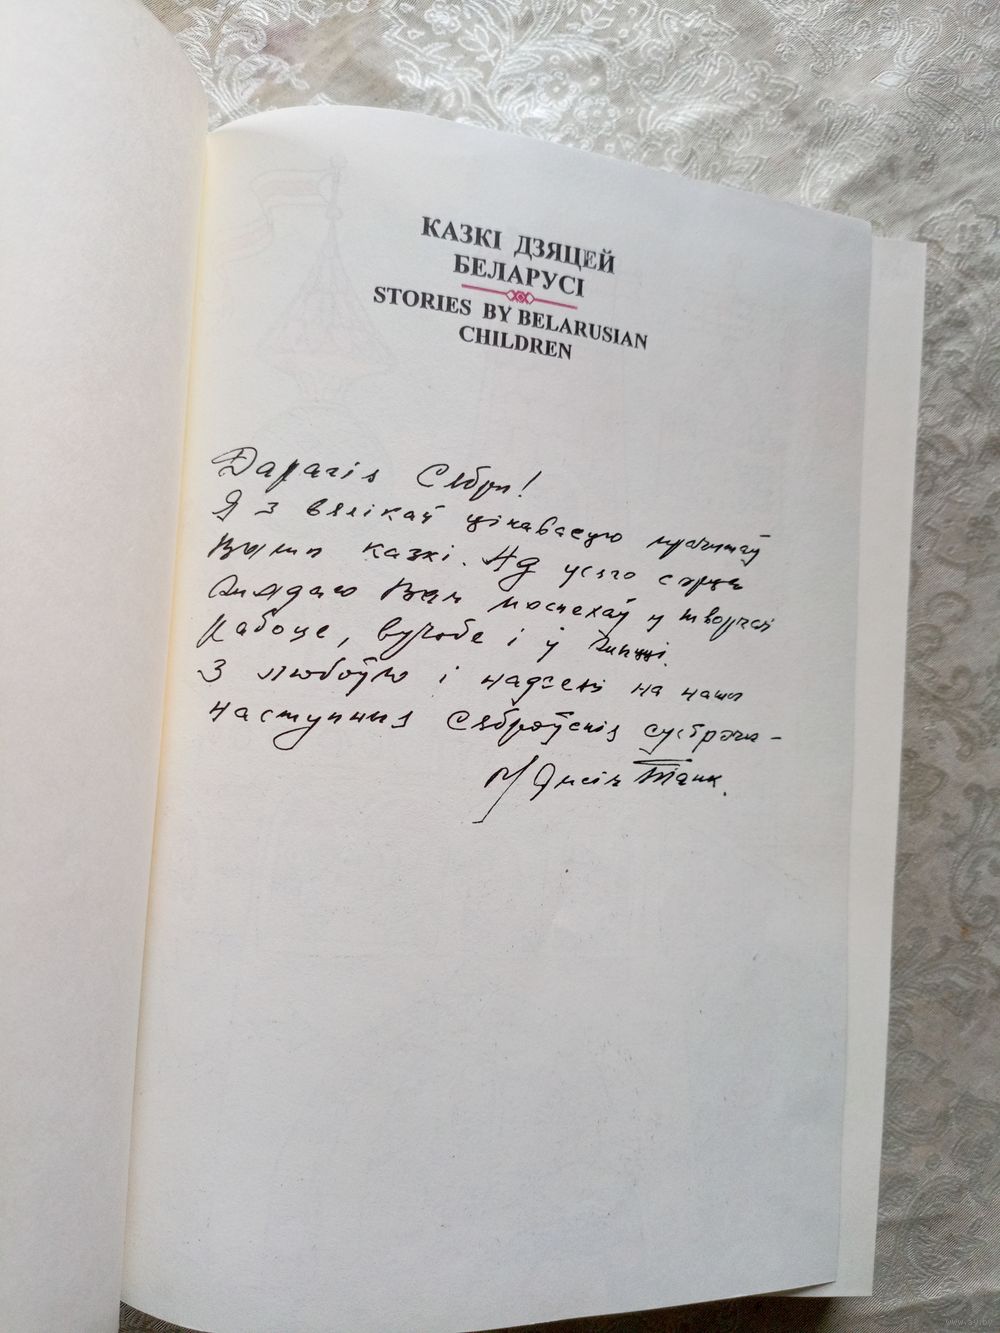 КАЗКІ ДЗЯЦЕЙ
БЕЛАРУСІ
STORIES BY BELARUSIAN
CHILDREN
Дарагія Сябры!
Я з вялікай цікавасцю прачытаў
Вашы казкі. Ад усяго сэрца
жадаю Вам поспехаў у творчай
рабоце, вучобе і ў жыцці.
З любоўю і надзеяй на нашы
наступныя сяброўскія сустрэчы –
Максім Танк.
www.ay.by